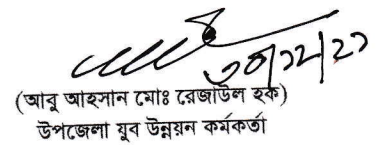 ৩০/১২/২১
(আবু আহসান মোঃ রেজাউল হক)
উপজেলা যুব উন্নয়ন কর্মকর্তা